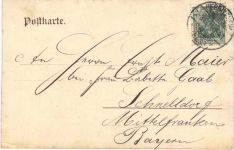 Postkarte.
An Herrn Ernst Maier
bei Frau Babette Gaab
Schnelldorf
Mittelfranken
Bayern